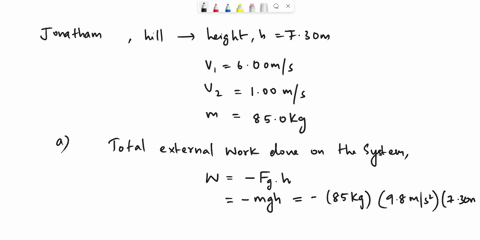 Jonatham, hill → height, h = 7.30m
V₁ = 6.00m/s
V₂ = 1.00 m/s
m = 85.0kg
a) Total external work done on the system,
W = -Fg.h
= -mgh = - (85kg) (9.8m/s²) (7.30m